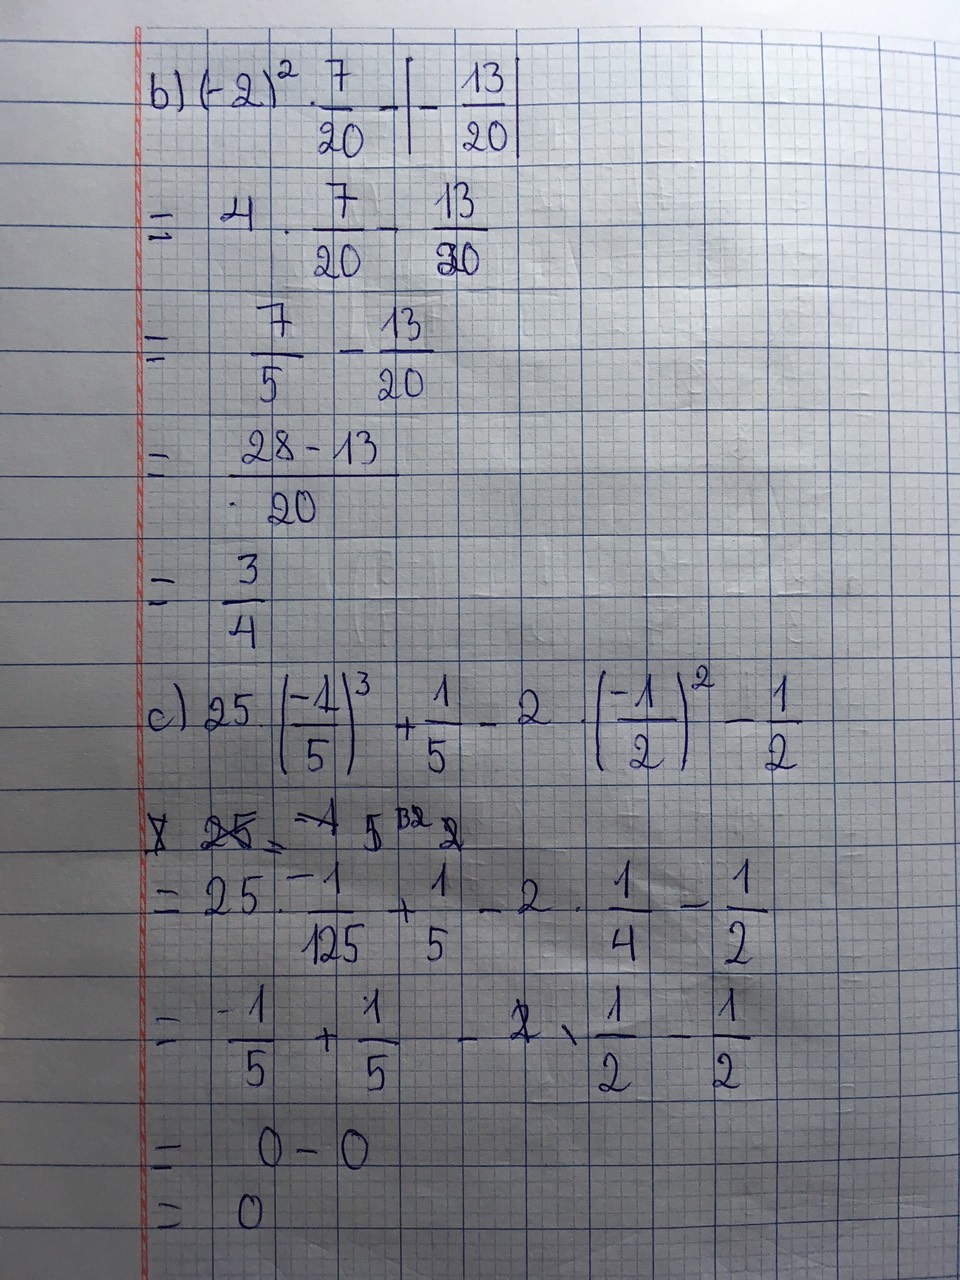 b) (-2)² · 7/20 - |- 13/20|
= 4 · 7/20 - 13/20
= 7/5 - 13/20
= (28 - 13)/20
= 3/4
c) 25 · (-1/5)³ + 1/5 - 2 · (-1/2)² - 1/2
= 25 · -1/125 + 1/5 - 2 · 1/4 - 1/2
= -1/5 + 1/5 - 1/2 - 1/2
= 0 - 0
= 0